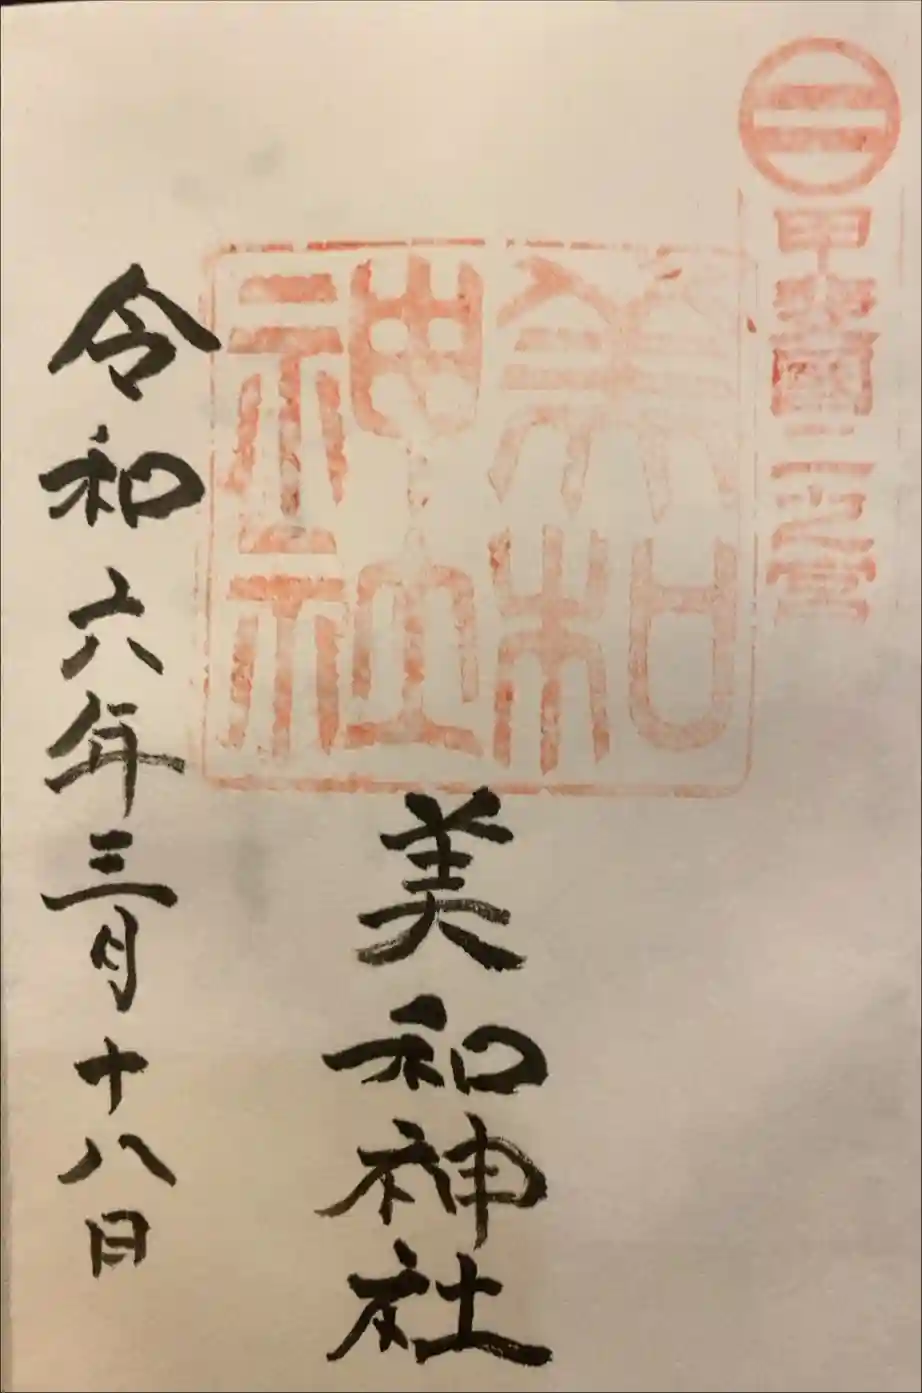 甲斐國二之宮
美和神社
美和神社
令和六年三月十八日